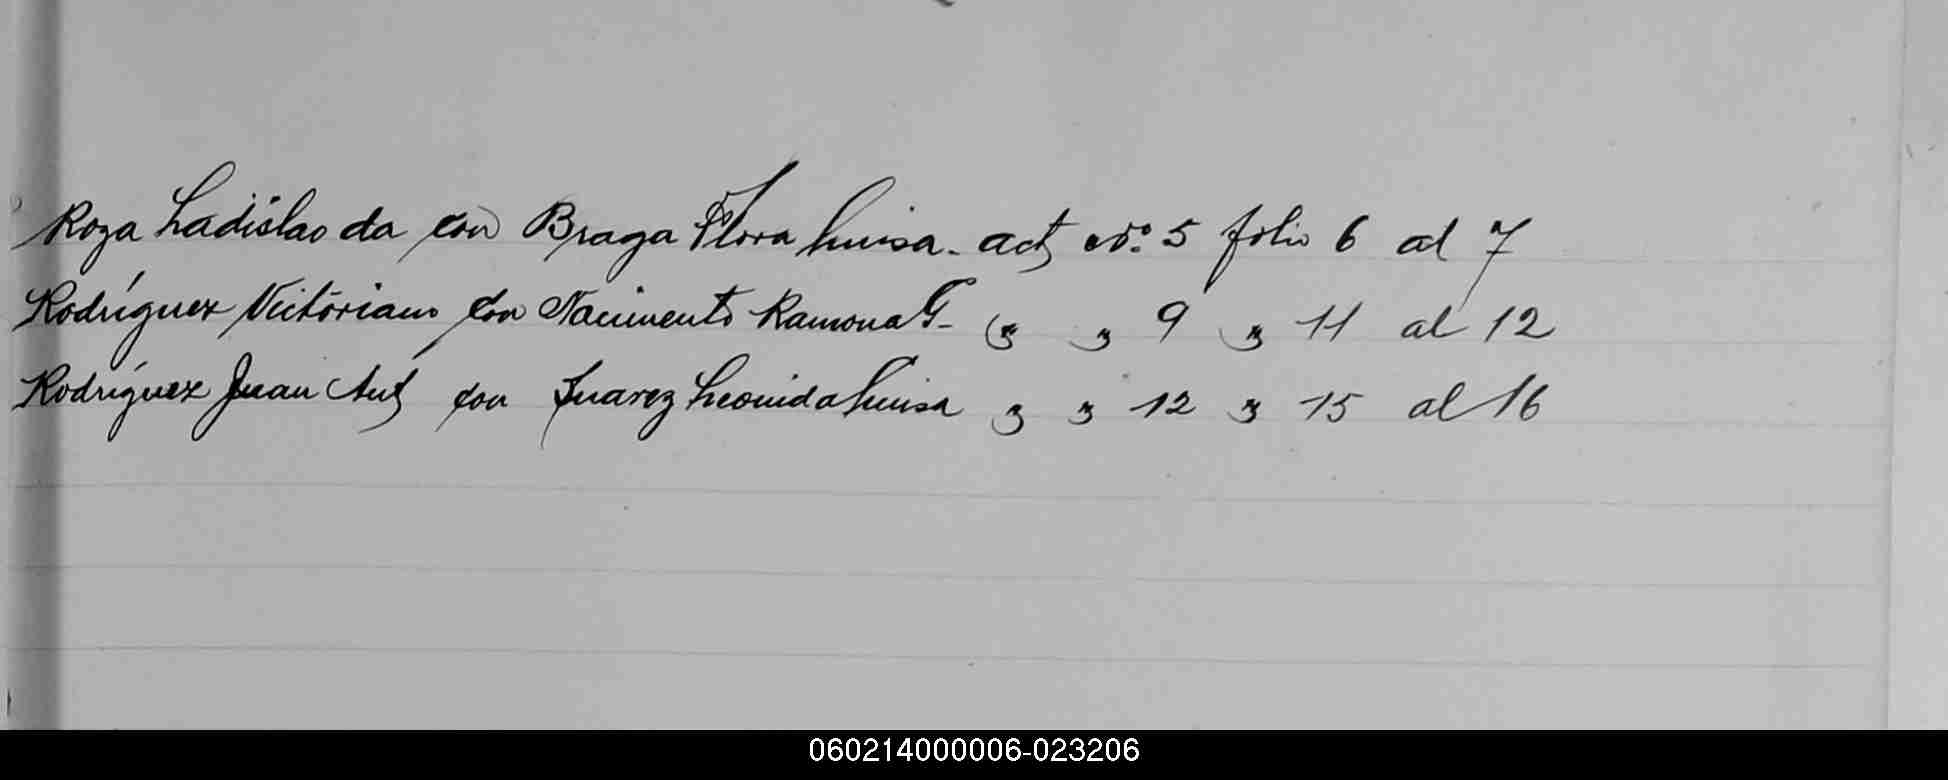 Roza Ladislao da con Braga Flora Luisa - act Nº 5 folio 6 al 7
Rodríguez Victoriano con Nacimento Ramona G - " " 9 " 11 al 12
Rodríguez Juan Ant con Juarez Leonida Luisa " " 12 " 15 al 16
060214000006-023206